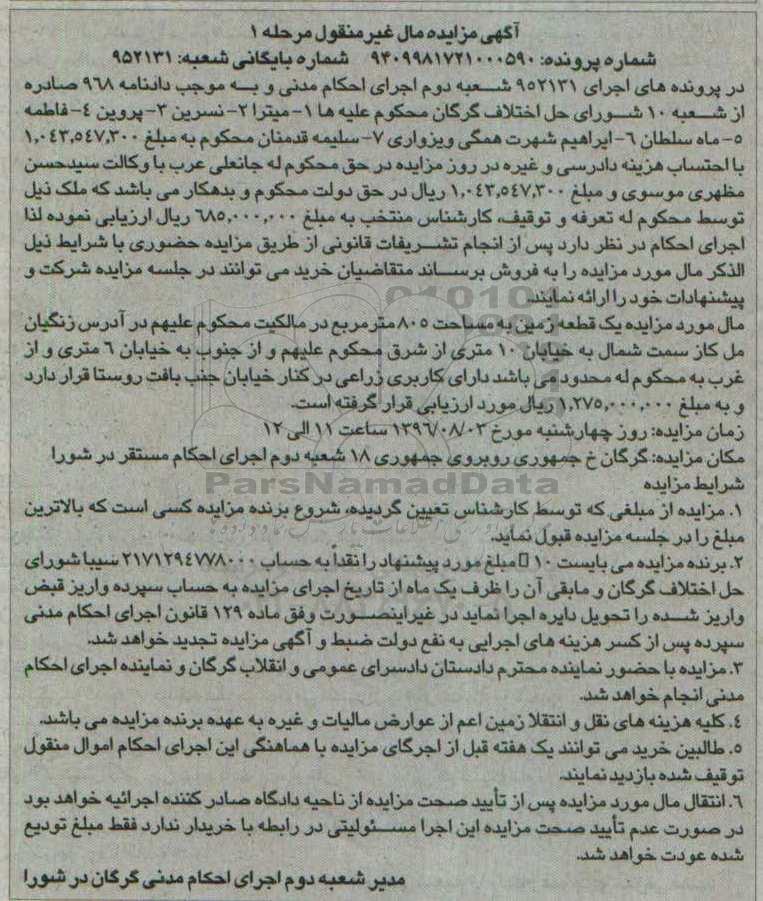 آگهی مزایده مال غیرمنقول مرحله ۱
شماره پرونده: ۹۴۰۹۹۸۱۷۲۱۰۰۰۵۹۰ شماره بایگانی شعبه: ۹۵۲۱۳۱
در پرونده های اجرای ۹۵۲۱۳۱ شعبه دوم اجرای احکام مدنی و به موجب دادنامه ۹۶۸ صادره
از شعبه ۱۰ شورای حل اختلاف گرگان محکوم علیه ها ۱- میترا ۲- نسرین ۳- پروین ۴- فاطمه
۵- ماه سلطان ۶- ابراهیم شهرت همگی ویزواری ۷- سلیمه قدمنان محکوم به مبلغ ۱,۰۴۳,۵۴۷,۳۰۰
با احتساب هزینه دادرسی و غیره در روز مزایده در حق محکوم له جانعلی عرب با وکالت سیدحسن
مظهری موسوی و مبلغ ۱,۰۴۳,۵۴۷,۳۰۰ ریال در حق دولت محکوم و بدهکار می باشد که ملک ذیل
توسط محکوم له تعرفه و توقیف، کارشناس منتخب به مبلغ ۶۸۵,۰۰۰,۰۰۰ ریال ارزیابی نموده لذا
اجرای احکام در نظر دارد پس از انجام تشریفات قانونی از طریق مزایده حضوری با شرایط ذیل
الذکر مال مورد مزایده را به فروش برساند متقاضیان خرید می توانند در جلسه مزایده شرکت و
پیشنهادات خود را ارائه نمایند.
مال مورد مزایده یک قطعه زمین به مساحت ۸۰۵ مترمربع در مالکیت محکوم علیهم در آدرس زنگیان
مل کاز سمت شمال به خیابان ۱۰ متری از شرق محکوم علیهم و از جنوب به خیابان ۶ متری و از
غرب به محکوم له محدود می باشد دارای کاربری زراعی در کنار خیابان جنب بافت روستا قرار دارد
و به مبلغ ۱,۲۷۵,۰۰۰,۰۰۰ ریال مورد ارزیابی قرار گرفته است.
زمان مزایده: روز چهارشنبه مورخ ۱۳۹۶/۰۸/۰۳ ساعت ۱۱ الی ۱۲
مکان مزایده: گرگان خ جمهوری روبروی جمهوری ۱۸ شعبه دوم اجرای احکام مستقر در شورا
شرایط مزایده
ParsNamadData
۱. مزایده از مبلغی که توسط کارشناس تعیین گردیده، شروع برنده مزایده کسی است که بالاترین
مبلغ را در جلسه مزایده قبول نماید.
۲. برنده مزایده می بایست ۱۰ مبلغ مورد پیشنهاد را نقداً به حساب ۲۱۷۱۲۹۴۷۷۸۰۰۰ سیبا شورای
حل اختلاف گرگان و مابقی آن را ظرف یک ماه از تاریخ اجرای مزایده به حساب سپرده واریز قبض
واریز شده را تحویل دایره اجرا نماید در غیراینصورت وفق ماده ۱۲۹ قانون اجرای احکام مدنی
سپرده پس از کسر هزینه های اجرایی به نفع دولت ضبط و آگهی مزایده تجدید خواهد شد.
۳. مزایده با حضور نماینده محترم دادستان دادسرای عمومی و انقلاب گرگان و نماینده اجرای احکام
مدنی انجام خواهد شد.
۴. کلیه هزینه های نقل و انتقلا زمین اعم از عوارض مالیات و غیره به عهده برنده مزایده می باشد.
۵. طالبین خرید می توانند یک هفته قبل از اجرگای مزایده با هماهنگی این اجرای احکام اموال منقول
توقیف شده بازدید نمایند.
۶. انتقال مال مورد مزایده پس از تأیید صحت مزایده از ناحیه دادگاه صادر کننده اجرائیه خواهد بود
در صورت عدم تأیید صحت مزایده این اجرا مسئولیتی در رابطه با خریدار ندارد فقط مبلغ تودیع
شده عودت خواهد شد.
مدیر شعبه دوم اجرای احکام مدنی گرگان در شورا